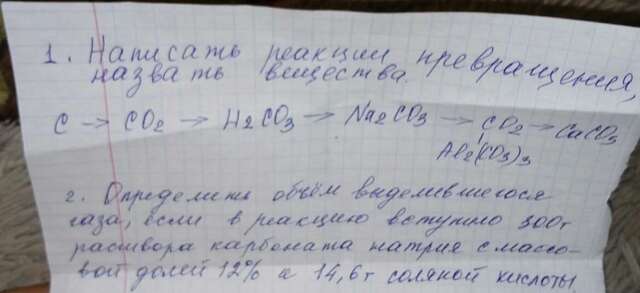 1. Написать реакции превращения,
назвать вещества.
C → CO2 → H2CO3 → Na2CO3 → CO2 → CaCO3
Al2(CO3)3
2. Определить объём выделившегося
газа, если в реакцию вступило 300г
раствора карбоната натрия с массо-
вой долей 12% а 14,6г соляной кислоты